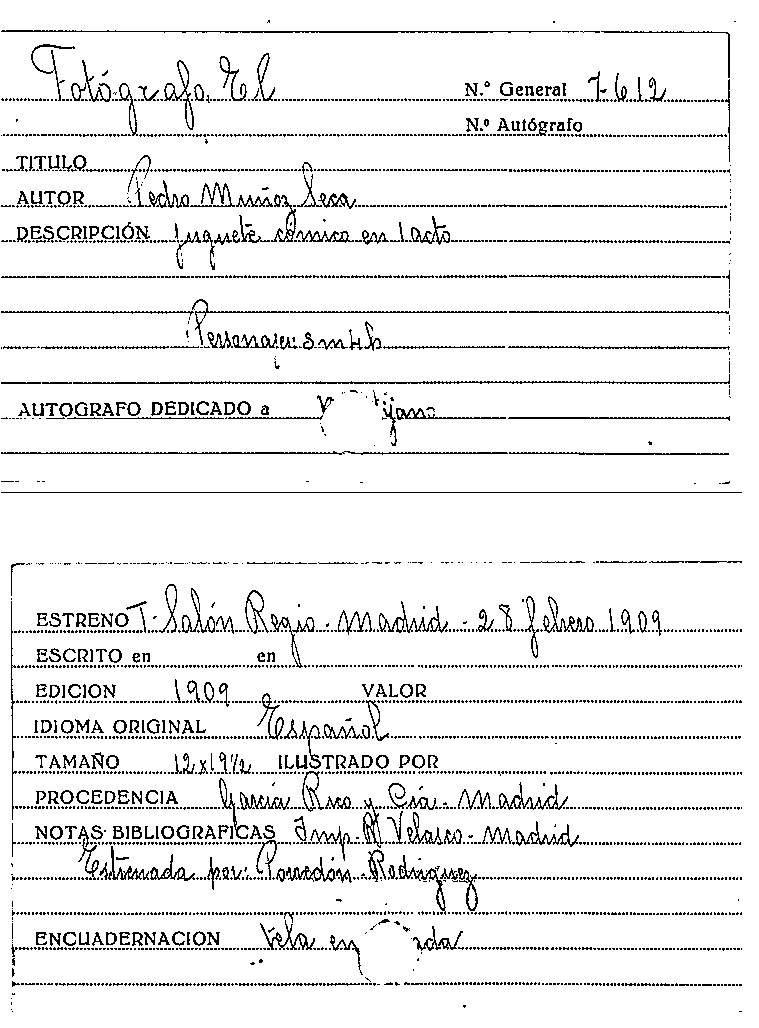 Fotógrafo, El
N.º General 7-612
N.º Autógrafo
TITULO
AUTOR Pedro Muñoz Seca
DESCRIPCIÓN Juguete cómico en 1 acto
Personajes: 3 m 4 h
AUTOGRAFO DEDICADO a
ESTRENO T. Salón Regio - Madrid - 28 febrero 1909
ESCRITO en en
EDICION 1909 VALOR
IDIOMA ORIGINAL Español
TAMAÑO 12x19½ ILUSTRADO POR
PROCEDENCIA García Rico y Cía - Madrid
NOTAS BIBLIOGRAFICAS Imp. R. Velasco - Madrid
Estrenada por: Porredón - Rodríguez
ENCUADERNACION tela en